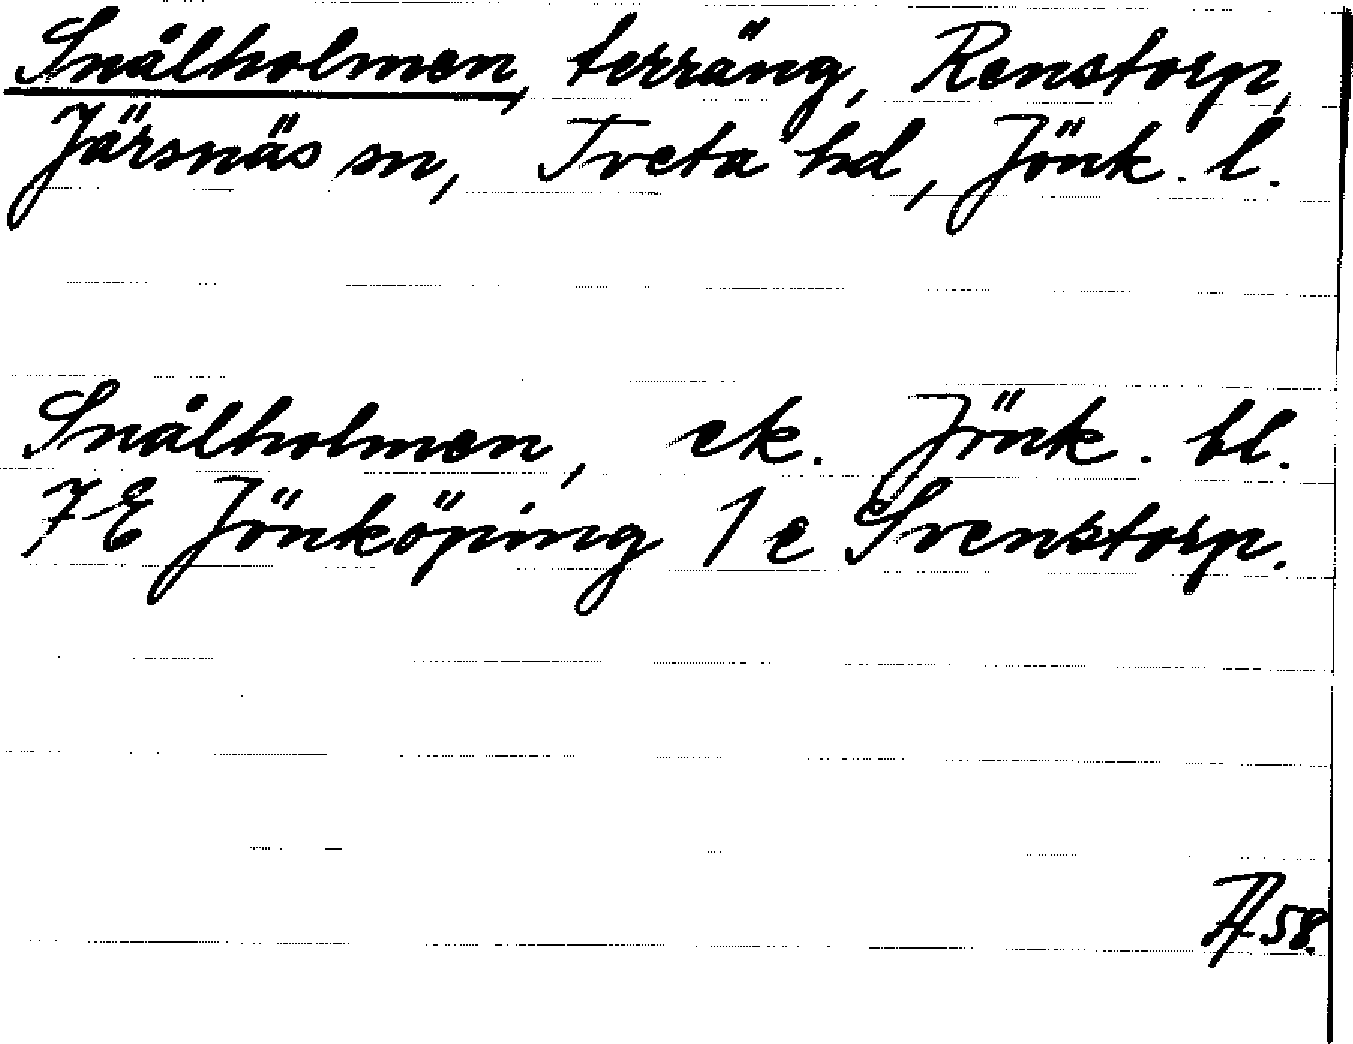 Snålholmen, terräng, Renstorp,
Järsnäs sn, Tveta hd, Jönk. l.
Snålholmen, ek. Jönk. bl.
7E Jönköping 1e Svenstorp.
58.